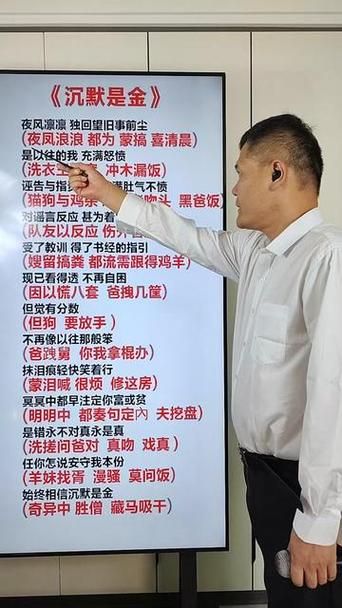 《沉默是金》
夜风凛凛 独回望旧事前尘
(夜凤浪浪 都为 蒙搞 喜清晨)
是以往的我 充满怒愤
(洗衣 冲木漏饭)
诬告与指 满肚气不愤
(猫狗与鸡 吻头 黑爸饭)
对谣言反应 甚为着
(队友以反应 伤
受了教训 得了书经的指引
(嫂留搞粪 都流需跟得鸡羊)
现已看得透 不再自困
(因以慌八套 爸拽几筐)
但觉有分数
(但狗 要放手 )
不再像以往那般笨
(爸跩舅 你我拿棍办)
抹泪痕轻快笑着行
(蒙泪喊 很烦 修这房)
冥冥中都早注定你富或贫
(明明中 都奏句定內 夫挖盘)
是错永不对真永是真
(洗搓问爸对 真吻 戏真 )
任你怎说安守我本份
(羊妹找胥 漫骚 莫问饭)
始终相信沉默是金
(奇异中 胜僧 藏马吸干)